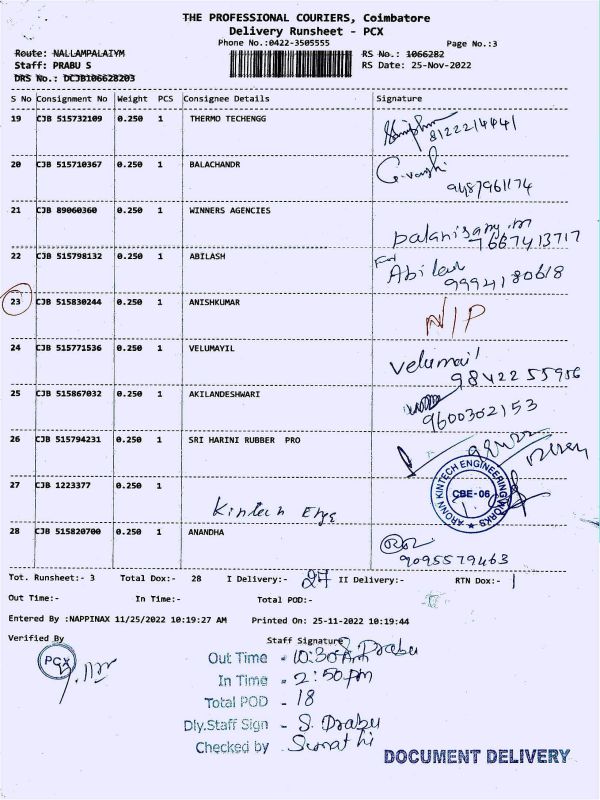 THE PROFESSIONAL COURIERS, Coimbatore
Delivery Runsheet - PCX
Phone No.:0422-3505555
Page No.:3
Route: NALLAMPALAIYM
RS No.: 1066282
Staff: PRABU S
RS Date: 25-Nov-2022
DRS No.: DCJB106628203
S No Consignment No Weight PCS Consignee Details Signature
19 CJB 515732109 0.250 1 THERMO TECHENGG
8122214441
20 CJB 515710367 0.250 1 BALACHANDR
9487961174
21 CJB 89060360 0.250 1 WINNERS AGENCIES
palanisamy.m
7667413717
22 CJB 515798132 0.250 1 ABILASH
For
Abilash
9994180618
23 CJB 515830244 0.250 1 ANISHKUMAR
N/P
24 CJB 515771536 0.250 1 VELUMAYIL
Velumail
9842255956
25 CJB 515867032 0.250 1 AKILANDESHWARI
9600302153
26 CJB 515794231 0.250 1 SRI HARINI RUBBER PRO
27 CJB 1223377 0.250 1
Kintech Engg
ARONN KINTECH ENGINEERING WORKS
CBE-06
28 CJB 515820700 0.250 1 ANANDHA
9095579463
Tot. Runsheet:- 3 Total Dox:- 28 I Delivery:- 27 II Delivery:- RTN Dox:- 1
Out Time:- In Time:- Total POD:-
Entered By :NAPPINAX 11/25/2022 10:19:27 AM Printed On: 25-11-2022 10:19:44
Verified By Staff Signature S. Prabu
PCX
Out Time - 10:30 Am
In Time - 2:50pm
Total POD - 18
Dly.Staff Sign - S. Prabu
Checked by - Sumathi
DOCUMENT DELIVERY